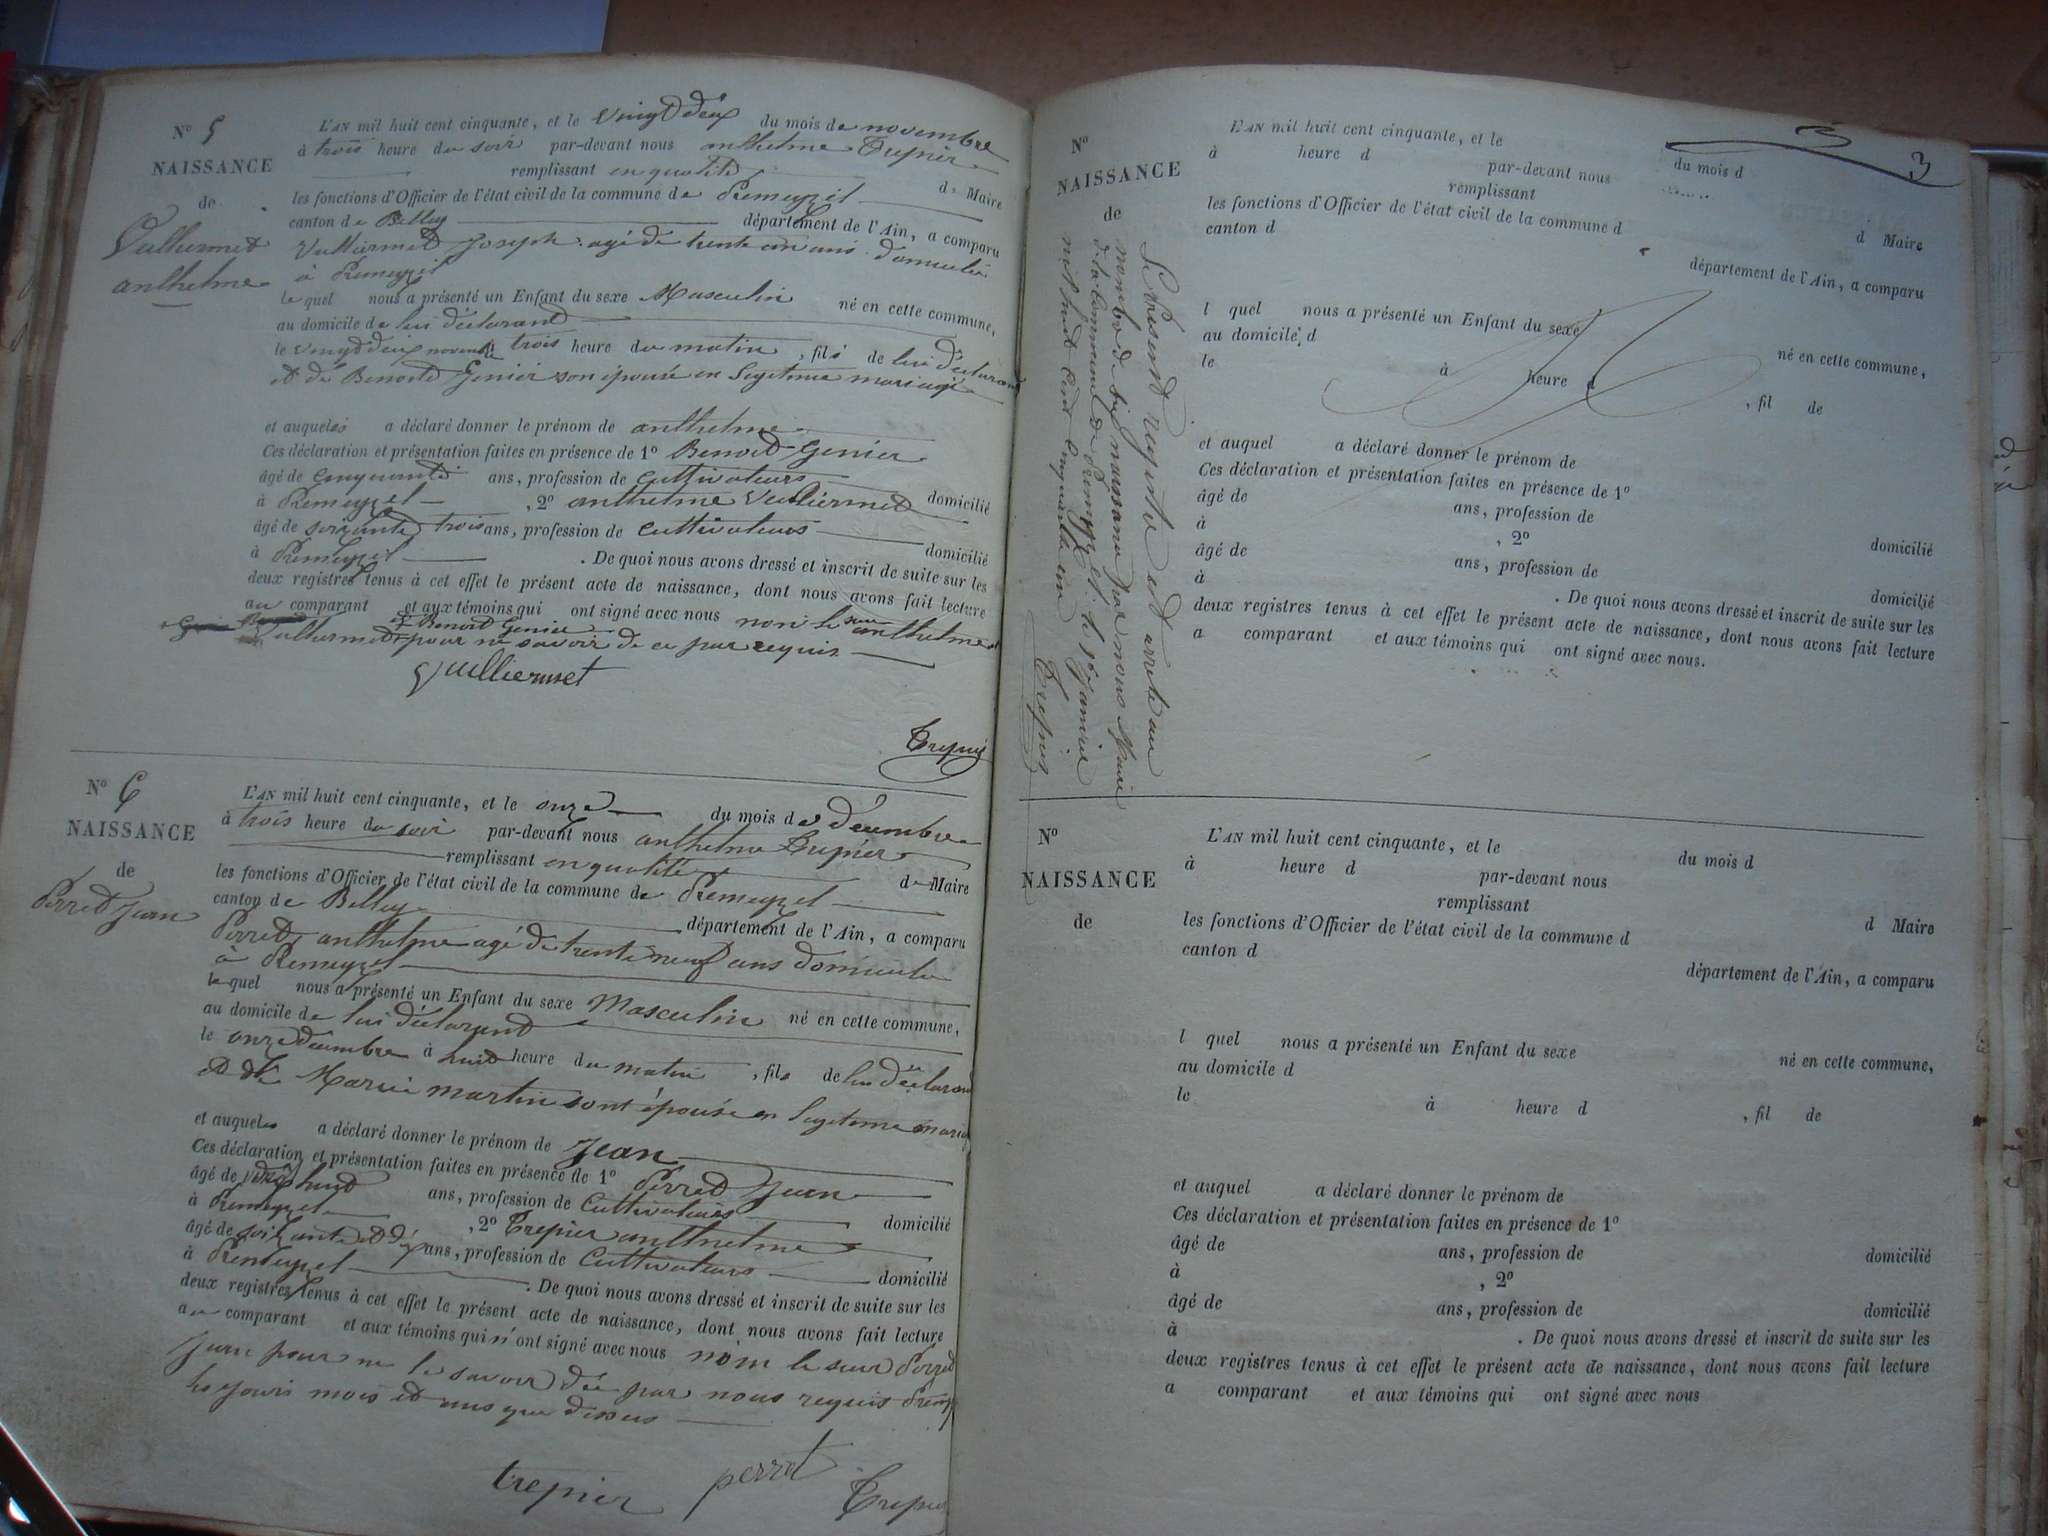 N° 5
NAISSANCE
de
Vulliermet
anthelme
L'AN mil huit cent cinquante, et le vingt deux du mois de novembre
à trois heure du soir par-devant nous anthelme Trepier
remplissant en qualité de Maire
les fonctions d'Officier de l'état civil de la commune de Premeyzel
canton de Belley département de l'Ain, a comparu
Vulliermet Joseph agé de trente un ans domicilié
à Premeyzel
le quel nous a présenté un Enfant du sexe Masculin né en cette commune,
au domicile de lui déclarant
le vingt deux novembre trois heure du matin, fils de lui déclarant
et de Benoite Genier son épouse en legetime mariage
et auquel a déclaré donner le prénom de anthelme
Ces déclaration et présentation faites en présence de 1° Benoit Genier
âgé de cinquante ans, profession de cultivateurs domicilié
à Premeyzel, 2° anthelme Vulliermet
âgé de soixante trois ans, profession de cultivateurs domicilié
à Premeyzel. De quoi nous avons dressé et inscrit de suite sur les
deux registres tenus à cet effet le présent acte de naissance, dont nous avons fait lecture
au comparant et aux témoins qui ont signé avec nous non le sieur anthelme
et Benoit Genier
Vulliermet pour ne savoir de ce par requis
Vulliermet
Trepier
N° 6
NAISSANCE
de
Perret Jean
L'AN mil huit cent cinquante, et le onze du mois de décembre
à trois heure du soir par-devant nous anthelme Trepier
remplissant en qualité de Maire
les fonctions d'Officier de l'état civil de la commune de Premeyzel
canton de Belley département de l'Ain, a comparu
Perret anthelme agé de trente neuf ans domicilié
à Premeyzel
le quel nous a présenté un Enfant du sexe Masculin né en cette commune,
au domicile de lui déclarant
le onze décembre à huit heure du matin, fils de lui déclarant
et de Marie martin sont épouse en legetime mariag
et auquel a déclaré donner le prénom de Jean
Ces déclaration et présentation faites en présence de 1° Perret Jean
âgé de vingt huit ans, profession de Cultivateurs domicilié
à Premeyzel, 2° Trepier anthelme
âgé de soixante et dix ans, profession de Cultivateurs domicilié
à Premeyzel. De quoi nous avons dressé et inscrit de suite sur les
deux registres tenus à cet effet le présent acte de naissance, dont nous avons fait lecture
au comparant et aux témoins qui n'ont signé avec nous non le sieur Perret
Jean pour ne le savoir de par nous requis
les jours mois et ans que dessus
trepier perret Trepier
3
N°
NAISSANCE
de
L'AN mil huit cent cinquante, et le du mois d
à heure d par-devant nous
remplissant d Maire
les fonctions d'Officier de l'état civil de la commune d
canton d département de l'Ain, a comparu
l quel nous a présenté un Enfant du sexe né en cette commune,
au domicile d
le à heure d, fil de
et auquel a déclaré donner le prénom de
Ces déclaration et présentation faites en présence de 1°
âgé de ans, profession de domicilié
à, 2°
âgé de ans, profession de domicilié
à. De quoi nous avons dressé et inscrit de suite sur les
deux registres tenus à cet effet le présent acte de naissance, dont nous avons fait lecture
a comparant et aux témoins qui ont signé avec nous.
Le présent registre est arreté au
nombre de six naissance par nous Maire
de la commune de Premeyzel le 1er Janvier
mil huit cent cinquante un
Trepier
N°
NAISSANCE
de
L'AN mil huit cent cinquante, et le du mois d
à heure d par-devant nous
remplissant d Maire
les fonctions d'Officier de l'état civil de la commune d
canton d département de l'Ain, a comparu
l quel nous a présenté un Enfant du sexe né en cette commune,
au domicile d
le à heure d, fil de
et auquel a déclaré donner le prénom de
Ces déclaration et présentation faites en présence de 1°
âgé de ans, profession de domicilié
à, 2°
âgé de ans, profession de domicilié
à. De quoi nous avons dressé et inscrit de suite sur les
deux registres tenus à cet effet le présent acte de naissance, dont nous avons fait lecture
a comparant et aux témoins qui ont signé avec nous